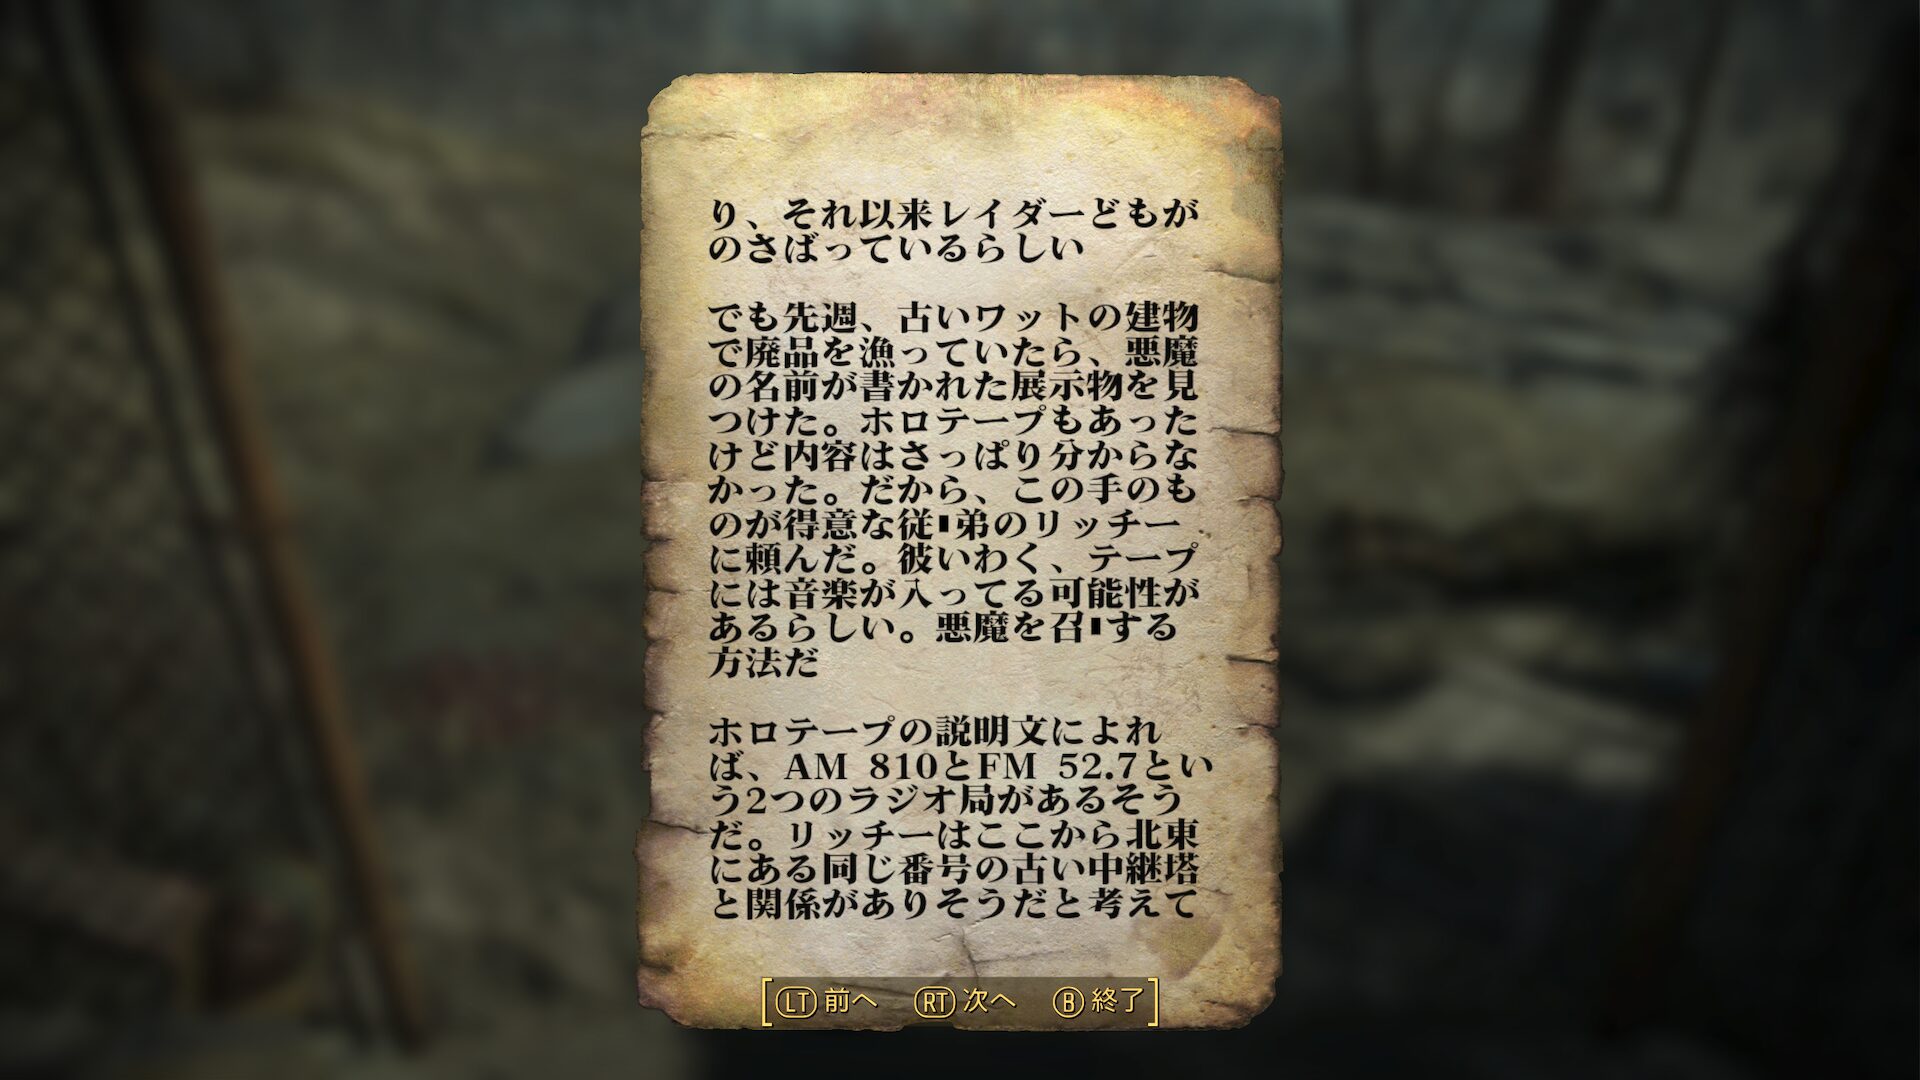 り、それ以来レイダーどもが
のさばっているらしい
でも先週、古いワットの建物
で廃品を漁っていたら、悪魔
の名前が書かれた展示物を見
つけた。ホロテープもあった
けど内容はさっぱり分からな
かった。だから、この手のも
のが得意な従▮弟のリッチー
に頼んだ。彼いわく、テープ
には音楽が入ってる可能性が
あるらしい。悪魔を召▮する
方法だ
ホロテープの説明文によれ
ば、AM 810とFM 52.7とい
う2つのラジオ局があるそう
だ。リッチーはここから北東
にある同じ番号の古い中継塔
と関係がありそうだと考えて
LT 前へ RT 次へ B 終了